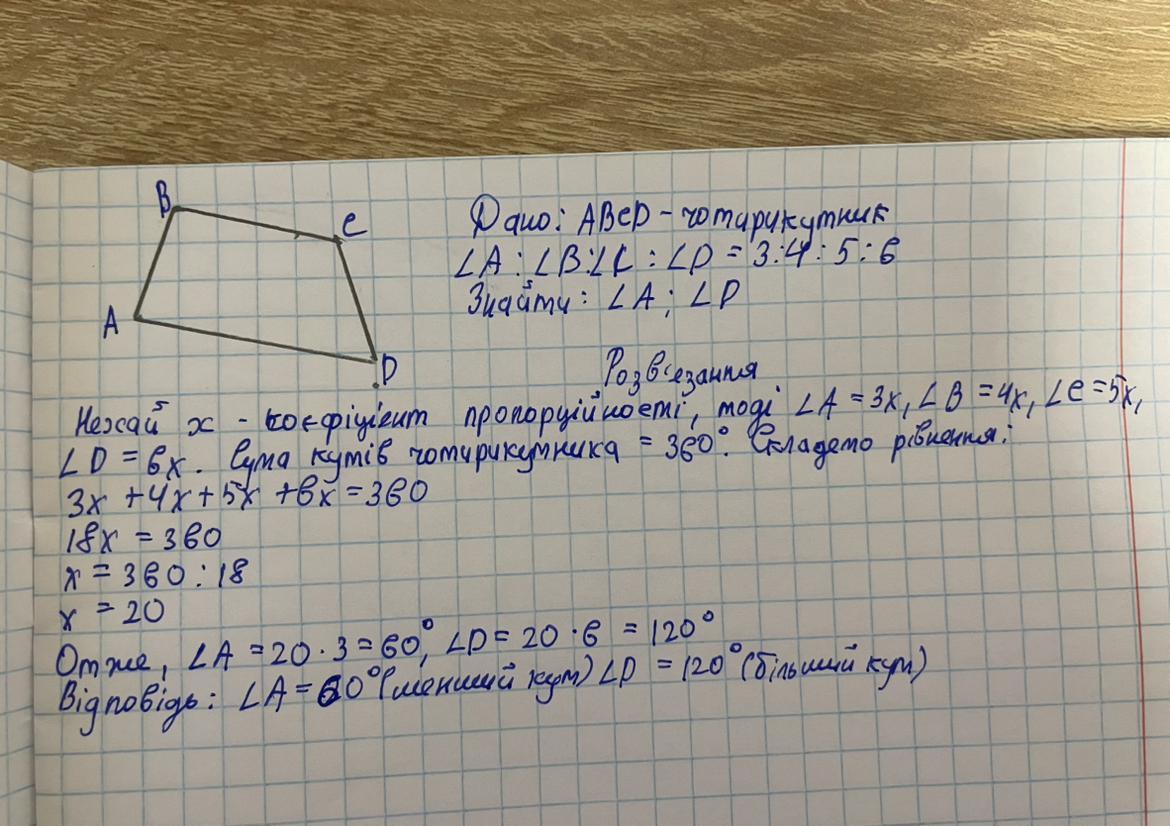 B
C
A
D
Дано: ABCD - чотирикутник
∠A : ∠B : ∠C : ∠D = 3:4:5:6
Знайти: ∠A; ∠D
Розв'язання
Нехай x - коєфіцієнт пропорційності, тоді ∠A = 3x, ∠B = 4x, ∠C = 5x,
∠D = 6x. Сума кутів чотирикутника = 360°. Складемо рівнення:
3x + 4x + 5x + 6x = 360
18x = 360
x = 360 : 18
x = 20
Отже, ∠A = 20 · 3 = 60°, ∠D = 20 · 6 = 120°
Відповідь: ∠A = 60° (менший кут) ∠D = 120° (більший кут)